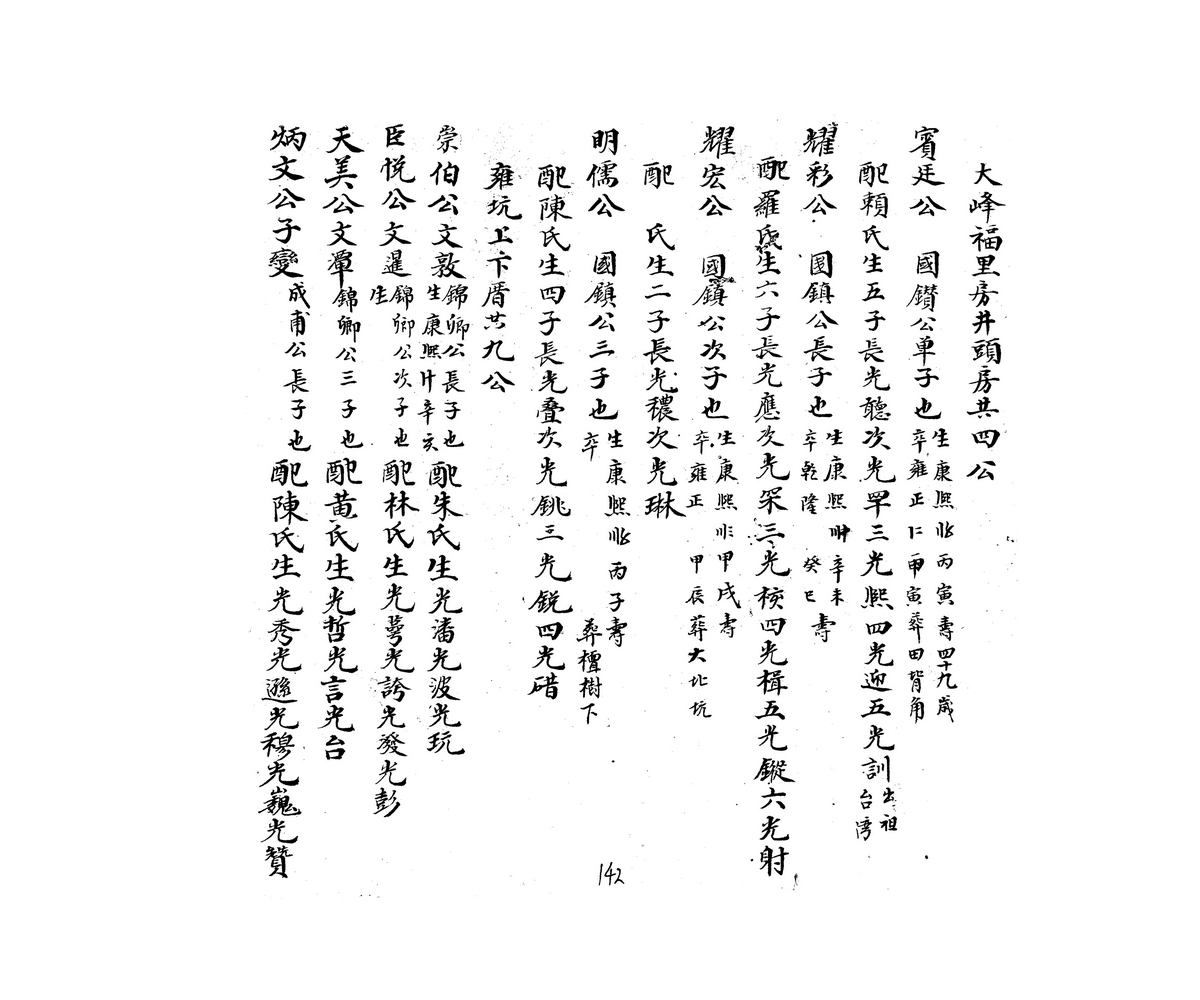 大峰福里房井頭房共四公
賓廷公 國鑽公单子也 生康熙丙寅壽四十九歲 卒雍正甲寅葬田背角
配賴氏生五子長光聽次光罕三光熙四光迎五光訓 出祖台湾
耀彩公 國鎮公長子也 生康熙辛未壽 卒乾隆癸巳
配羅氏生六子長光應次光罙三光核四光楫五光鏦六光射
耀宏公 國鎮公次子也 生康熙甲戌壽 卒雍正甲辰葬大北坑
配 氏生二子長光穠次光琳
明儒公 國鎮公三子也 生康熙丙子壽 卒 葬檀樹下
配陳氏生四子長光疊次光銚三光銳四光碏
雍坑上下厝共九公
崇伯公文敦 錦卿公長子也 生康熙卄辛亥 配朱氏生光潘光波光玩
臣悅公文暹 錦卿公次子也 生 配林氏生光蕚光誇光發光彭
天美公文潭 錦卿公三子也 配黃氏生光哲光言光台
炳文公子變 成甫公長子也 配陳氏生光秀光遜光穆光巍光贊
142